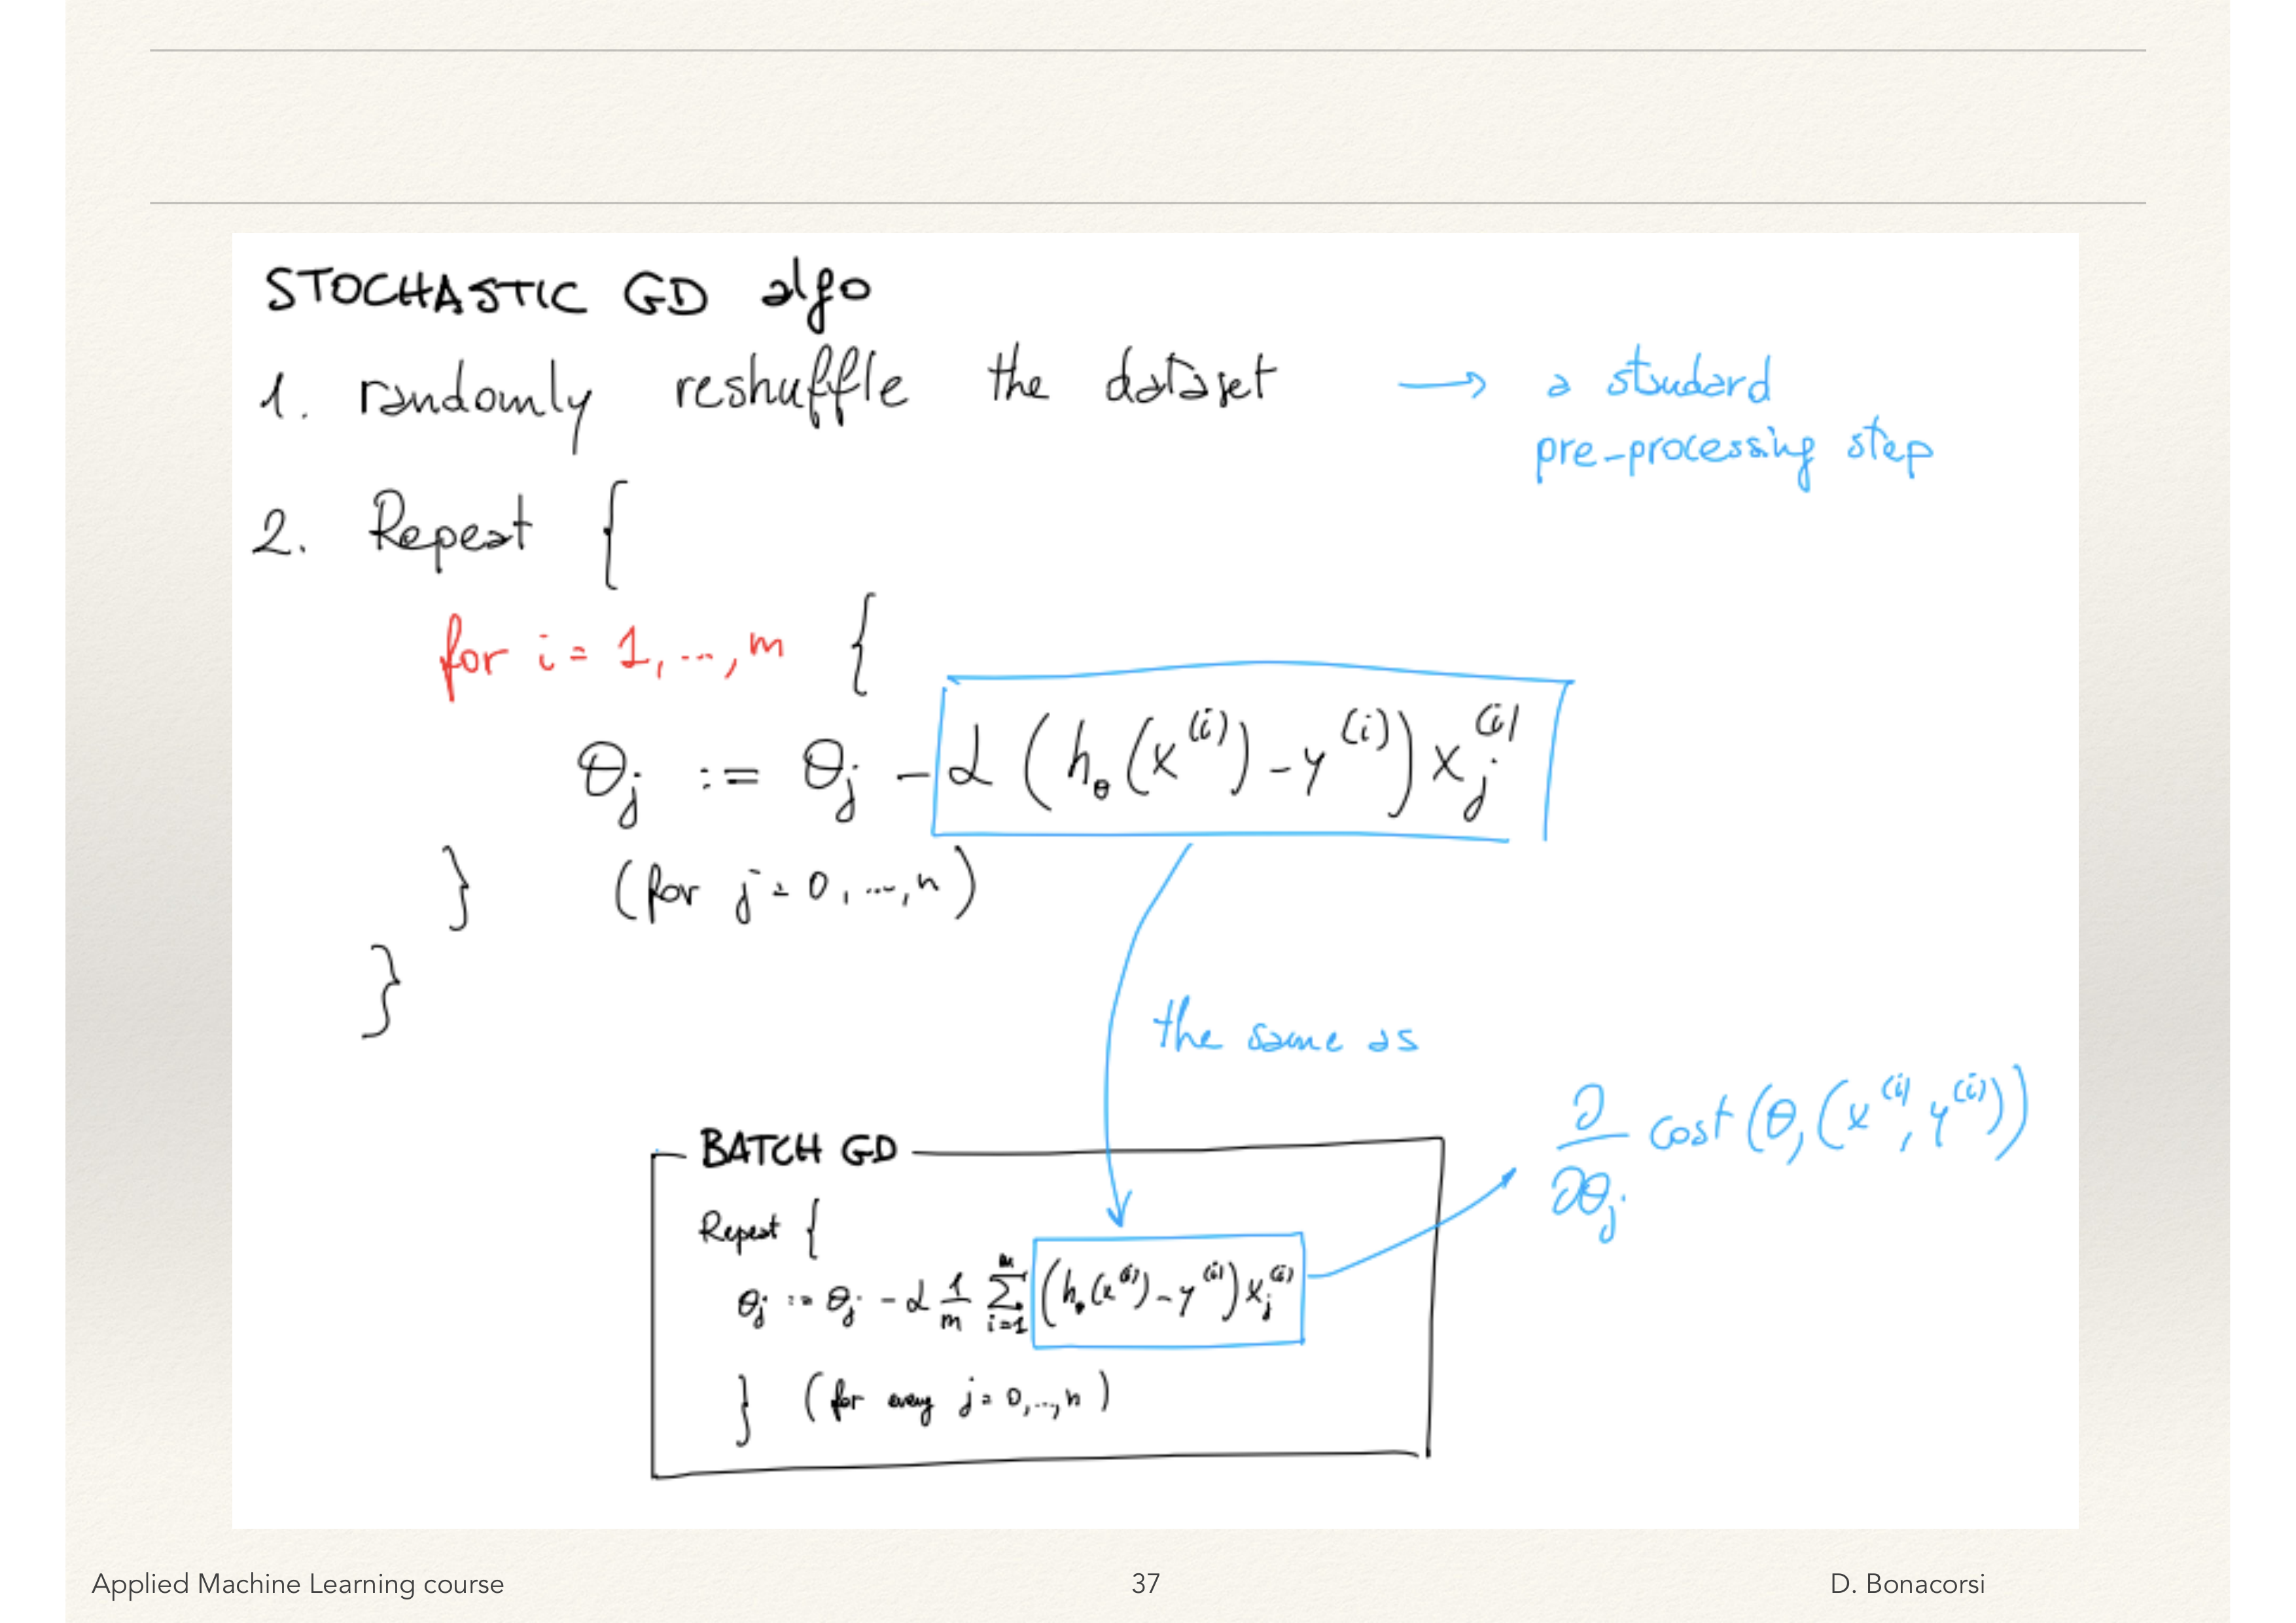 STOCHASTIC GD algo
1. randomly reshuffle the dataset → a standard
pre-processing step
2. Repeat {
for i = 1, ..., m {
θj := θj - α (hθ(x^(i)) - y^(i)) xj^(i)
} (for j = 0, ..., n)
}
the same as
∂/∂θj cost(θ, (x^(i), y^(i)))
BATCH GD
Repeat {
θj := θj - α 1/m Σ_{i=1}^{m} (hθ(x^(i)) - y^(i)) xj^(i)
} (for every j = 0, ..., n)
Applied Machine Learning course 37 D. Bonacorsi